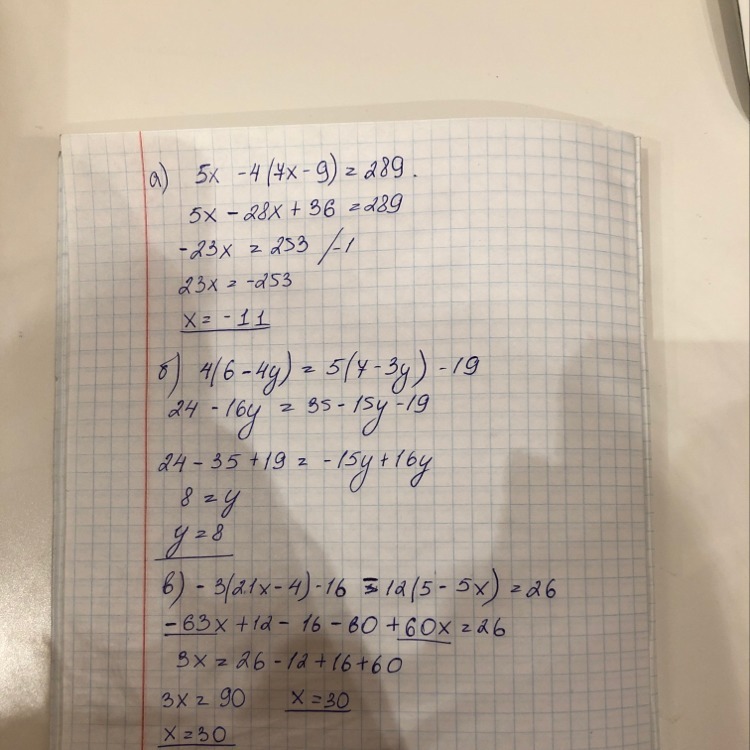 а) 5x - 4(7x - 9) = 289.
5x - 28x + 36 = 289
-23x = 253 /-1
23x = -253
x = -11
б) 4(6 - 4y) = 5(7 - 3y) - 19
24 - 16y = 35 - 15y - 19
24 - 35 + 19 = -15y + 16y
8 = y
y = 8
в) -3(21x - 4) - 16 - 12(5 - 5x) = 26
-63x + 12 - 16 - 60 + 60x = 26
3x = 26 - 12 + 16 + 60
3x = 90 x = 30
x = 30